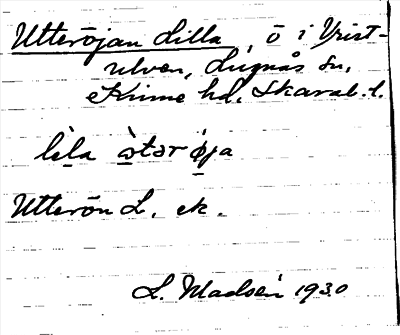 Utteröjan Lilla, ö i Yrist-
ulven, Lugnås sn,
Kinne hd. Skarab. l.
lìla ꞷ̀tər ø̀ja
Utterön L. ek.
L. Madsén 1930